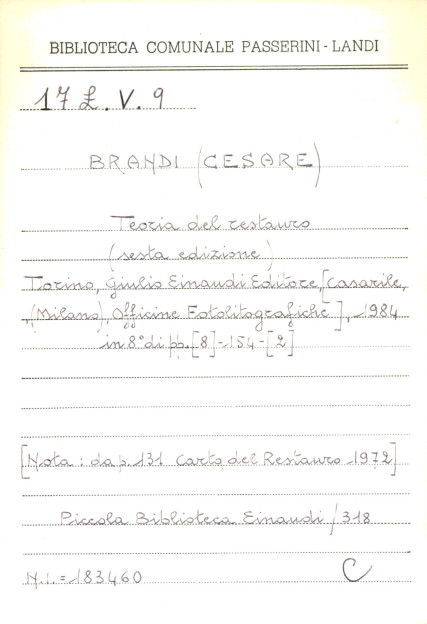 BIBLIOTECA COMUNALE PASSERINI - LANDI
17 £. V. 9
BRANDI (CESARE)
Teoria del restauro
(sesta edizione)
Torino, Giulio Einaudi Editore, [Casarile,
(Milano), Officine Fotolitografiche], 1984
in 8° di pp. [8] - 154 - [2]
[Nota : da p. 131 Carta del Restauro 1972]
Piccola Biblioteca Einaudi / 318
N.I. = 183460 C